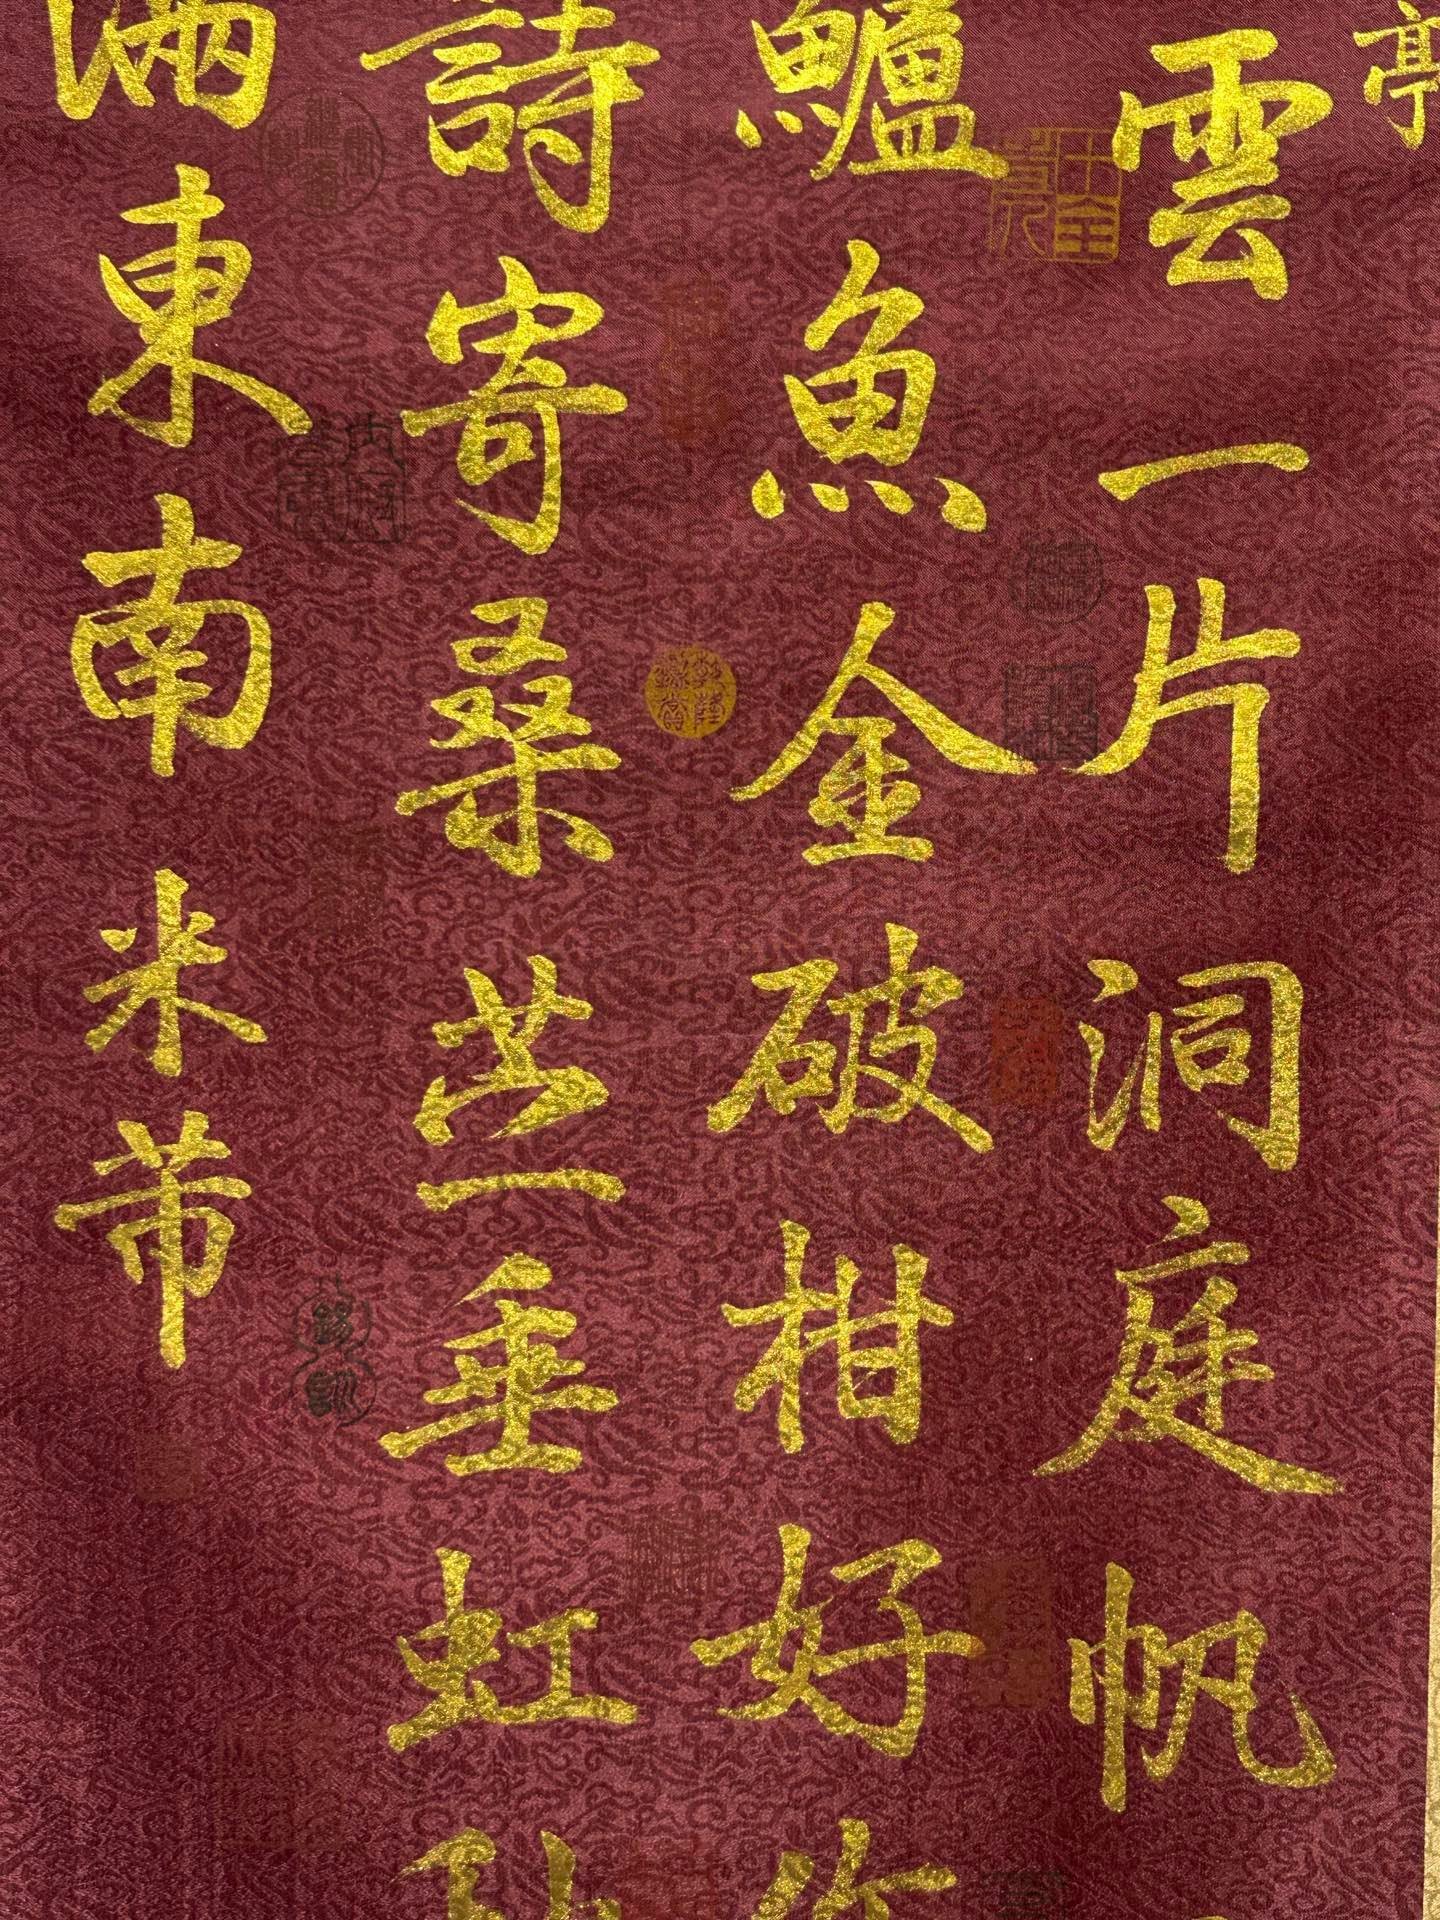 亭
雲一片洞庭帆
鱸魚金破柑好作
詩寄桑苎垂虹
滿東南米芾